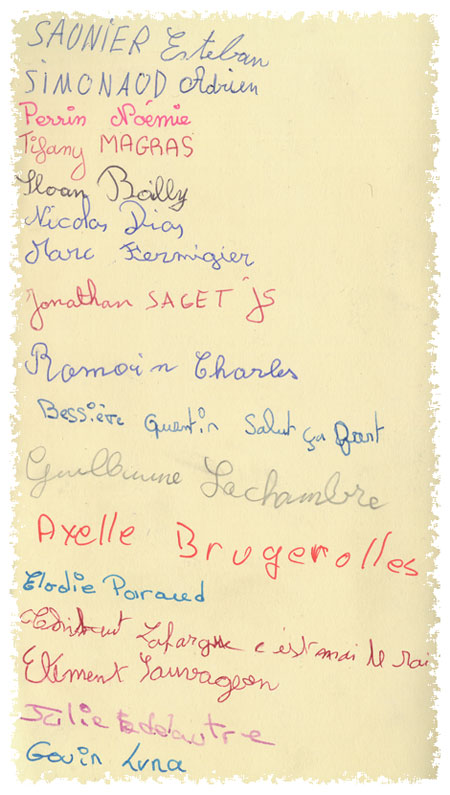 SAUNIER Esteban
SIMONAUD Adrien
Perrin Noémie
Tifany MAGRAS
Sloan Bailly
Nicolas Dias
Marc Fermigier
Jonathan SAGET JS
Romain Charles
Bessière Quentin Salut ça
Guillaume Lachambre
Axelle Brugerolles
Elodie Paraud
Lafargue c'est mai le rai
Clément Sauvageon
Julie
Govin Luna